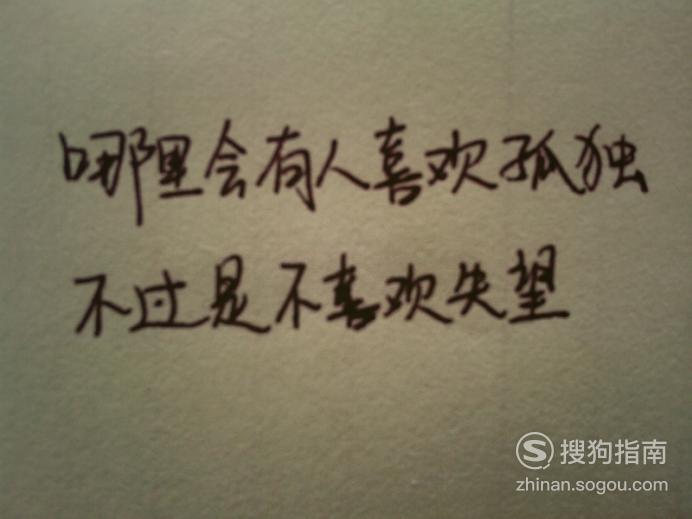 哪里会有人喜欢孤独
不过是不喜欢失望
搜狗指南
zhinan.sogou.com